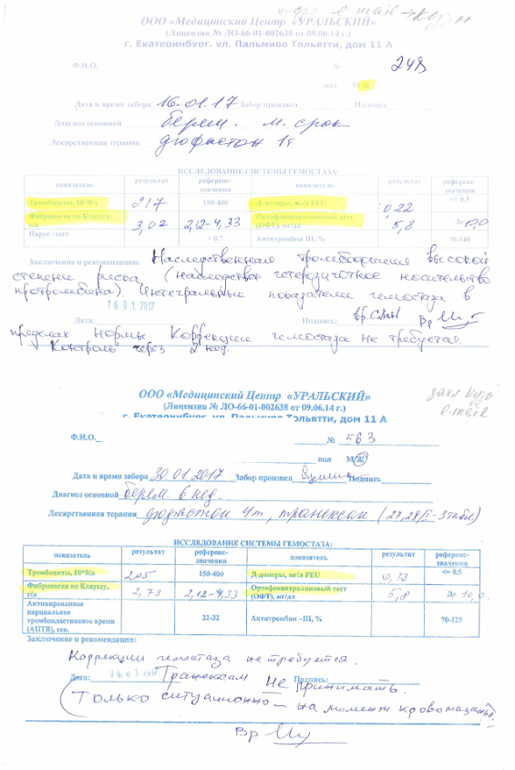 e-mail
ООО «Медицинский Центр «УРАЛЬСКИЙ»
(Лицензия № ЛО-66-01-002638 от 09.06.14 г.)
г. Екатеринбург, ул. Пальмиро Тольятти, дом 11 А
Ф.И.О. № 248
пол М/Ж
Дата и время забора 16.01.17 Забор произвел Подпись
Диагноз основной берем. м. срок
Лекарственная терапия дюфастон 1т
ИССЛЕДОВАНИЕ СИСТЕМЫ ГЕМОСТАЗА:
показатель результат референс-значения показатель результат референс-значения
Тромбоциты, 10*9/л 217 150-400 Д-димеры, мг/л FEU 0,22 <= 0.5
Фибриноген по Клаусу, г/л 3,02 2,12-4,33 Ортофенантролиновый тест (ОФТ), мг/дл 5,8 до 10,0
Парус-тест > 0.7 Антитромбин III, % 70-140
Заключение и рекомендации: Наследственная тромбофилия высокой
степени риска (наследствен. гетерозиготное носительство
протромбина). Интегральные показатели гемостаза в
Дата: 16 01 2017 Подпись: Вр
пределах нормы. Коррекции гемостаза не требуется
Контроль через 2 нед.
e-mail
ООО «Медицинский Центр «УРАЛЬСКИЙ»
(Лицензия № ЛО-66-01-002638 от 09.06.14 г.)
г. Екатеринбург, ул. Пальмиро Тольятти, дом 11 А
Ф.И.О. № 563
пол М/Ж
Дата и время забора 30.01.2017 Забор произвел Подпись
Диагноз основной берем. 6 нед.
Лекарственная терапия дюфастон 4т, транексам (27,28/I-3табл)
ИССЛЕДОВАНИЕ СИСТЕМЫ ГЕМОСТАЗА:
показатель результат референс-значения показатель результат референс-значения
Тромбоциты, 10*9/л 205 150-400 Д-димеры, мг/л FEU 0,13 <= 0.5
Фибриноген по Клауссу, г/л 2,73 2,12-4,33 Ортофенантролиновый тест (ОФТ), мг/дл 5,8 до 10,0
Активированное парциальное тромбопластиновое время (АПТВ), сек. 22-32 Антитромбин -III, % 70-125
Заключение и рекомендации:
Коррекции гемостаза не требуется.
Дата: Транексам не принимать. Подпись:
(Только ситуационно - на момент кровомазанья.
Вр